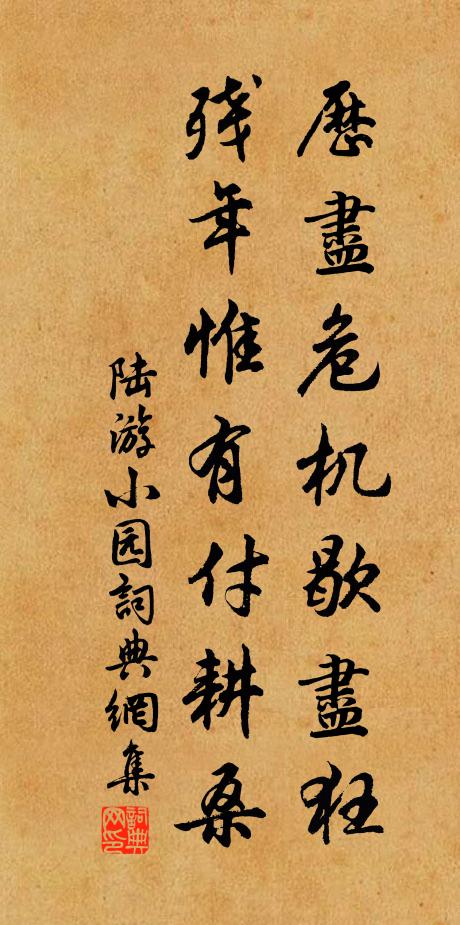 歷盡危机歇盡狂
残年惟有付耕桑
陆游小园詞典網集
詞典网印